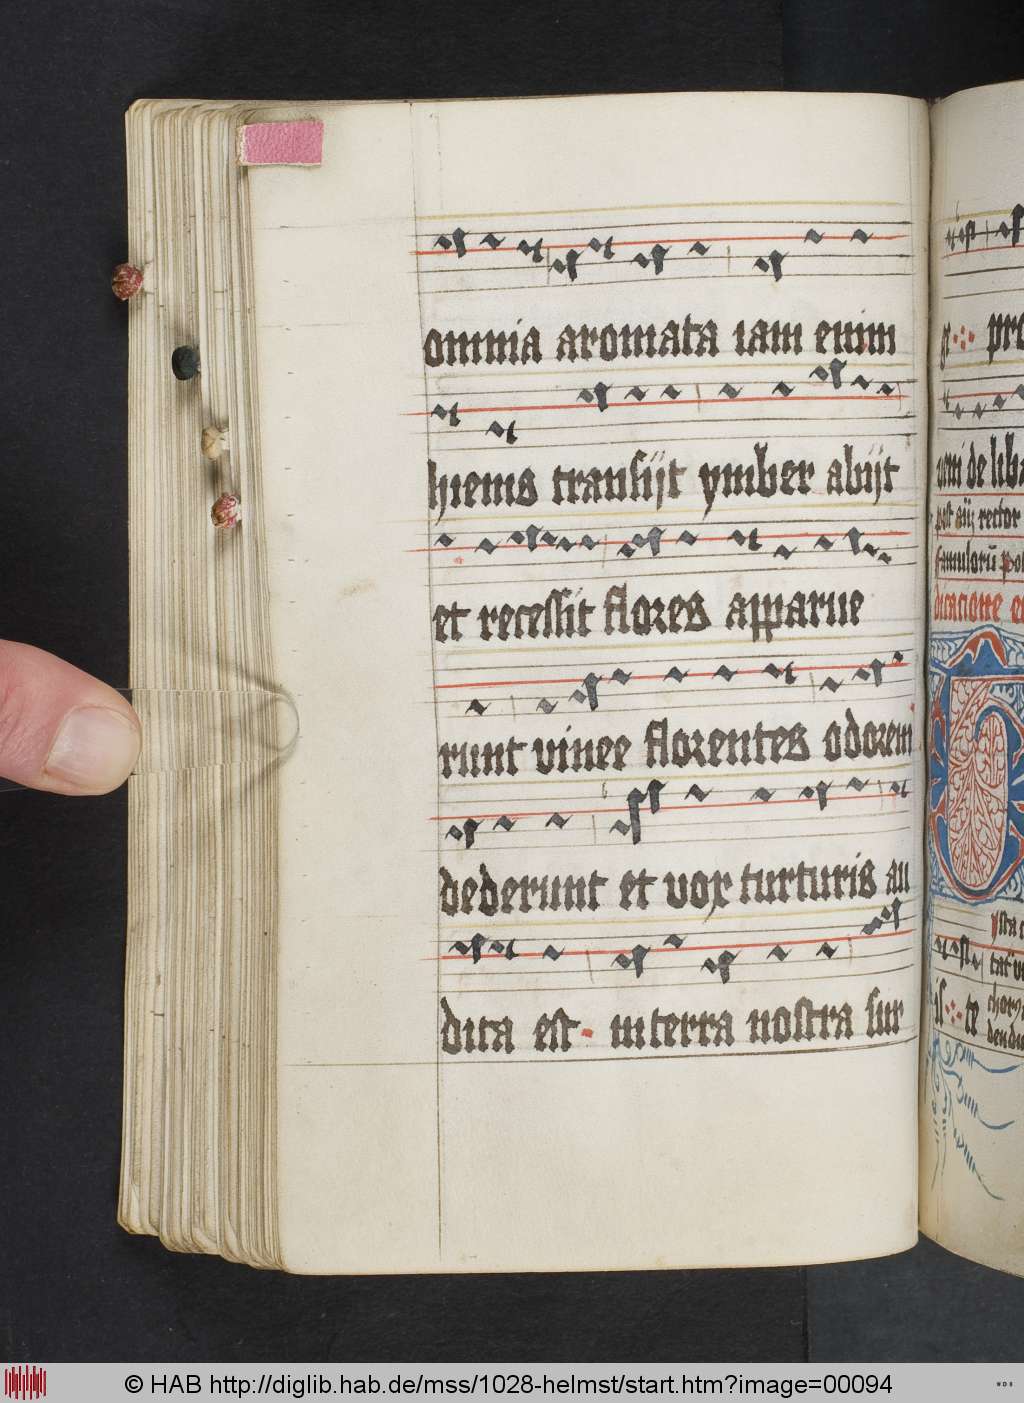 omnia aromata iam enim
hiems transijt ymber abijt
et recessit flores apparue
runt vinee florentes odorem
dederunt et vox turturis au
dita est · in terra nostra sur
pre
de liba
rector
famuloru
te
© HAB http://diglib.hab.de/mss/1028-helmst/start.htm?image=00094